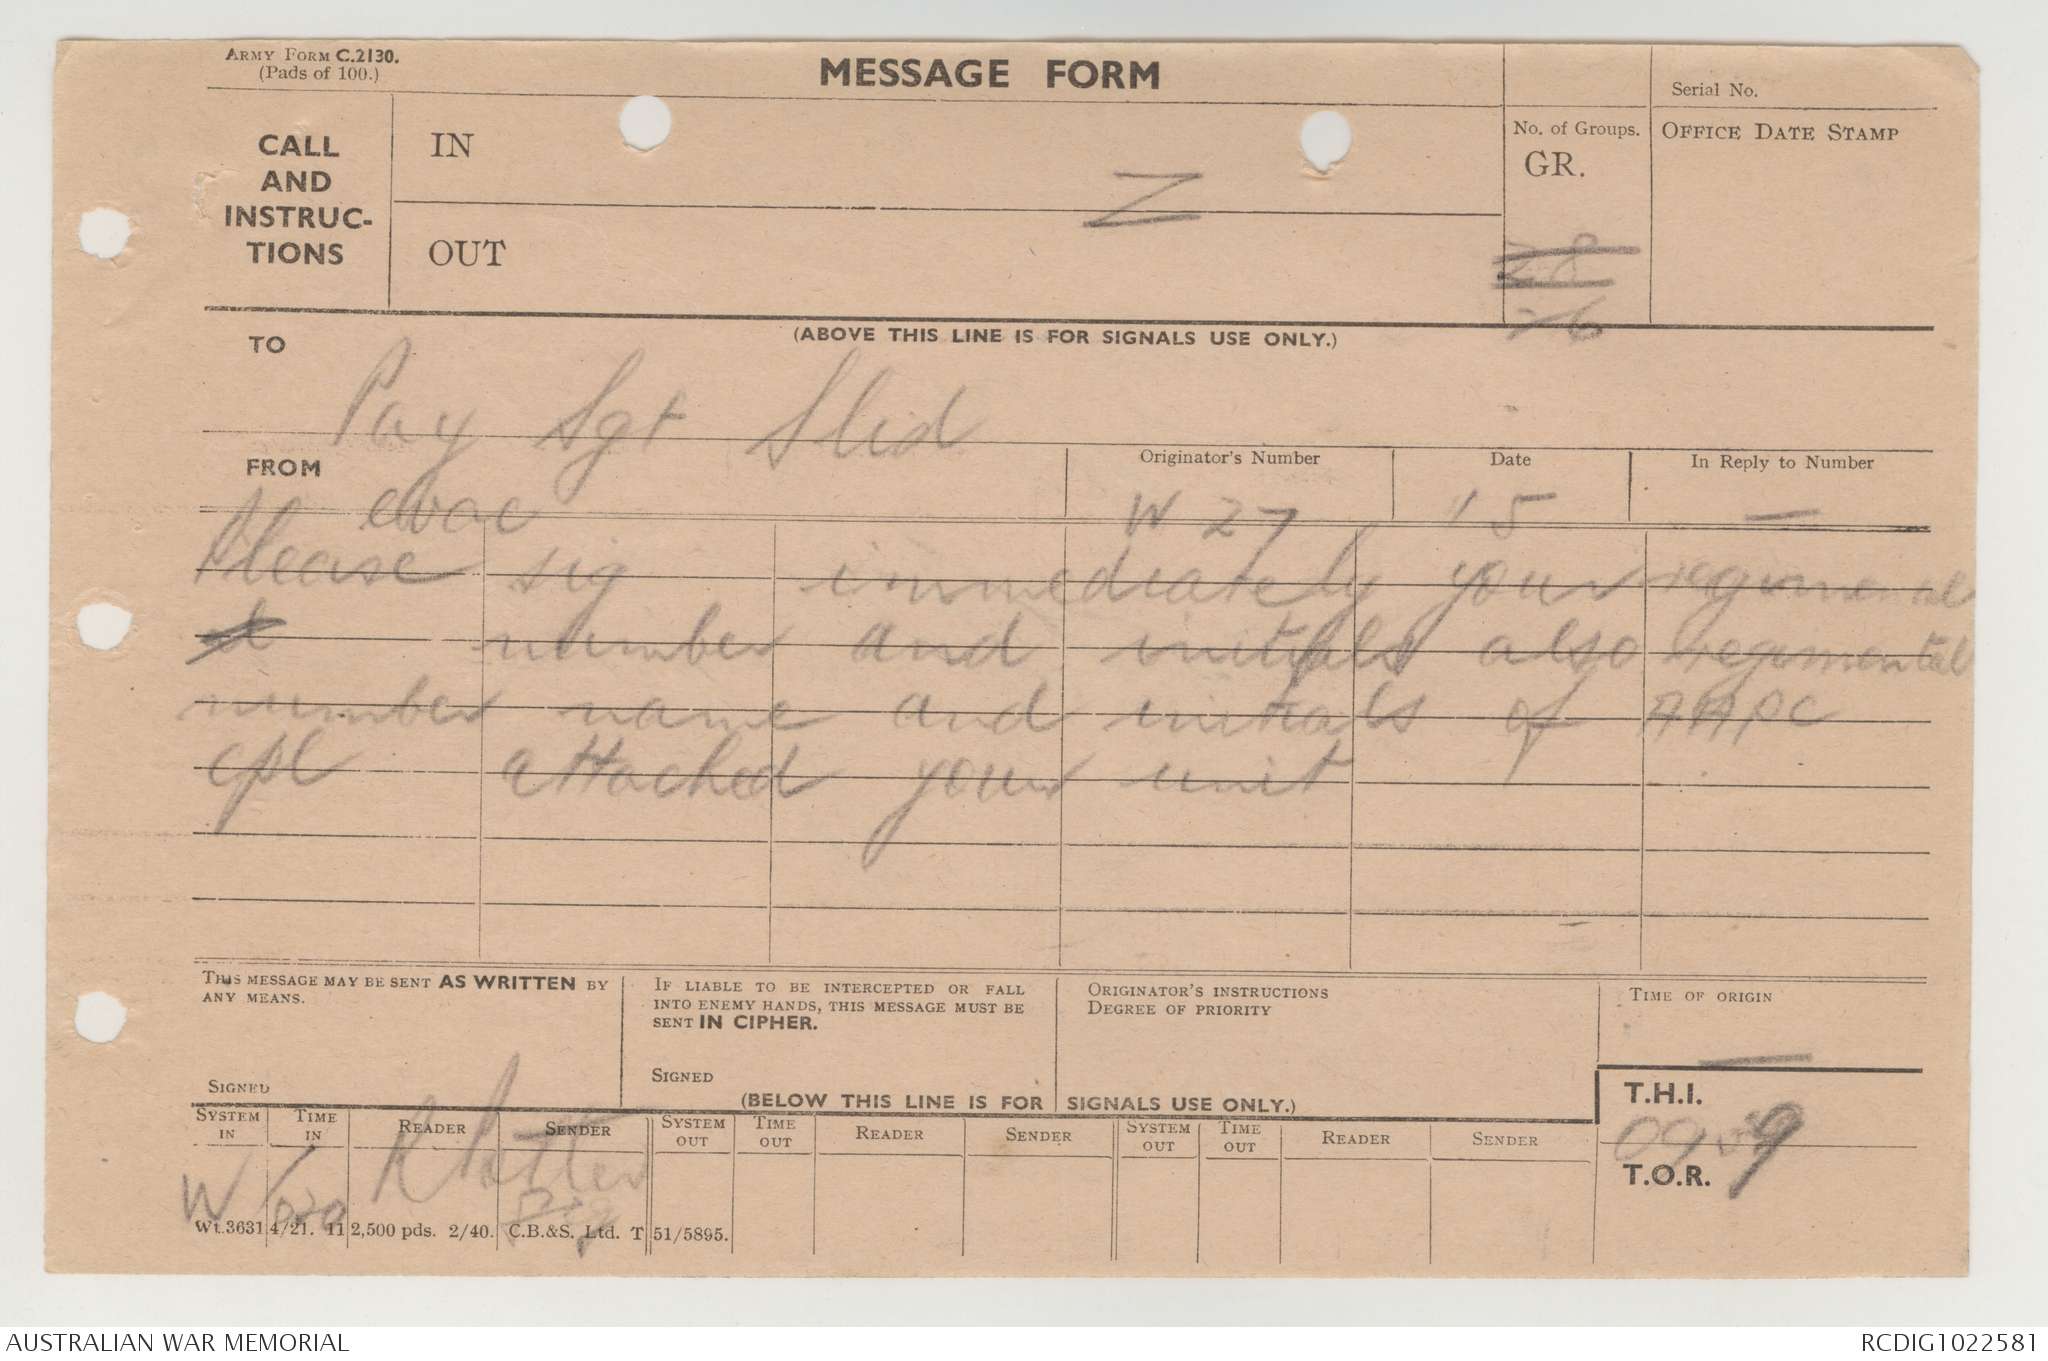 ARMY FORM C.2130.
(Pads of 100.)
MESSAGE FORM
Serial No.
CALL AND INSTRUC-TIONS
IN
Z
OUT
No. of Groups.
GR.
28
26
OFFICE DATE STAMP
(ABOVE THIS LINE IS FOR SIGNALS USE ONLY.)
TO
Pay Sgt Slid
FROM
evac
Originator's Number
W 27
Date
15
In Reply to Number
—
Please sig immediately your regimental
number and initials also regimental
number name and initials of AAPC
cpl attached your unit
THIS MESSAGE MAY BE SENT AS WRITTEN BY
ANY MEANS.
SIGNED
IF LIABLE TO BE INTERCEPTED OR FALL
INTO ENEMY HANDS, THIS MESSAGE MUST BE
SENT IN CIPHER.
SIGNED
ORIGINATOR'S INSTRUCTIONS
DEGREE OF PRIORITY
TIME OF ORIGIN
—
(BELOW THIS LINE IS FOR SIGNALS USE ONLY.)
T.H.I.
T.O.R.
SYSTEM IN
TIME IN
READER
SENDER
SYSTEM OUT
TIME OUT
READER
SENDER
SYSTEM OUT
TIME OUT
READER
SENDER
W/
Wt.36314/21. 112,500 pds. 2/40. C.B.&S. Ltd. T51/5895.
AUSTRALIAN WAR MEMORIAL
RCDIG1022581